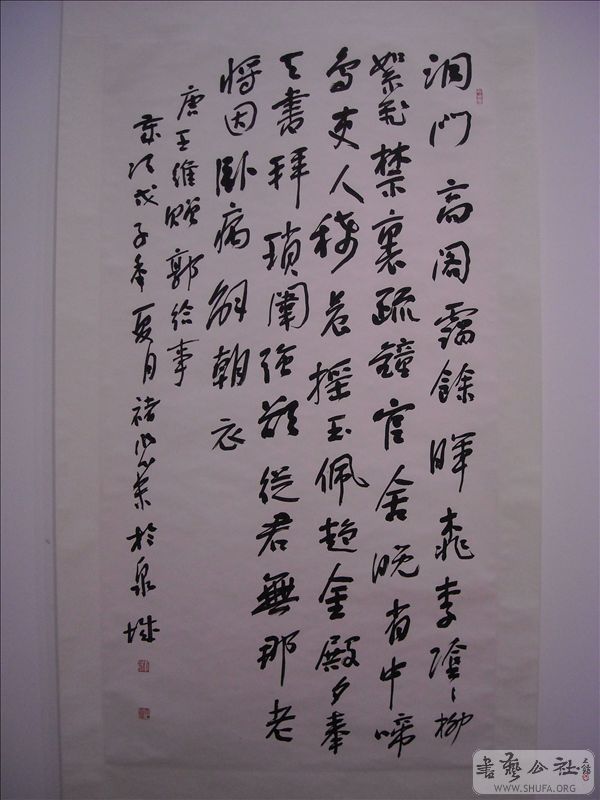 洞門高阁靄餘暉桃李陰々柳
絮飛禁裏疏鐘官舍晚省中啼
鳥吏人稀晨摇玉佩趋金殿夕奉
天書拜瑣闈强欲從君無那老
將因卧病解朝衣
唐王維贈郭给事
歲次戊子年夏月褚 於泉城
書藝公社
WWW.SHUFA.ORG